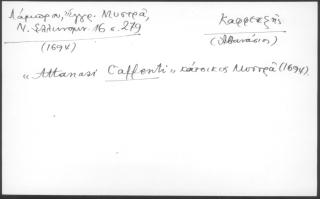 Λάμπρου, Ἔγγρ. Μυστρᾶ,
Ν. Ἑλληνομν. 16 σ. 279
(1694)
Καφφετζῆς
(Ἀθανάσιος)
"Attanasi Caffenti" κάτοικος Μυστρᾶ (1694)